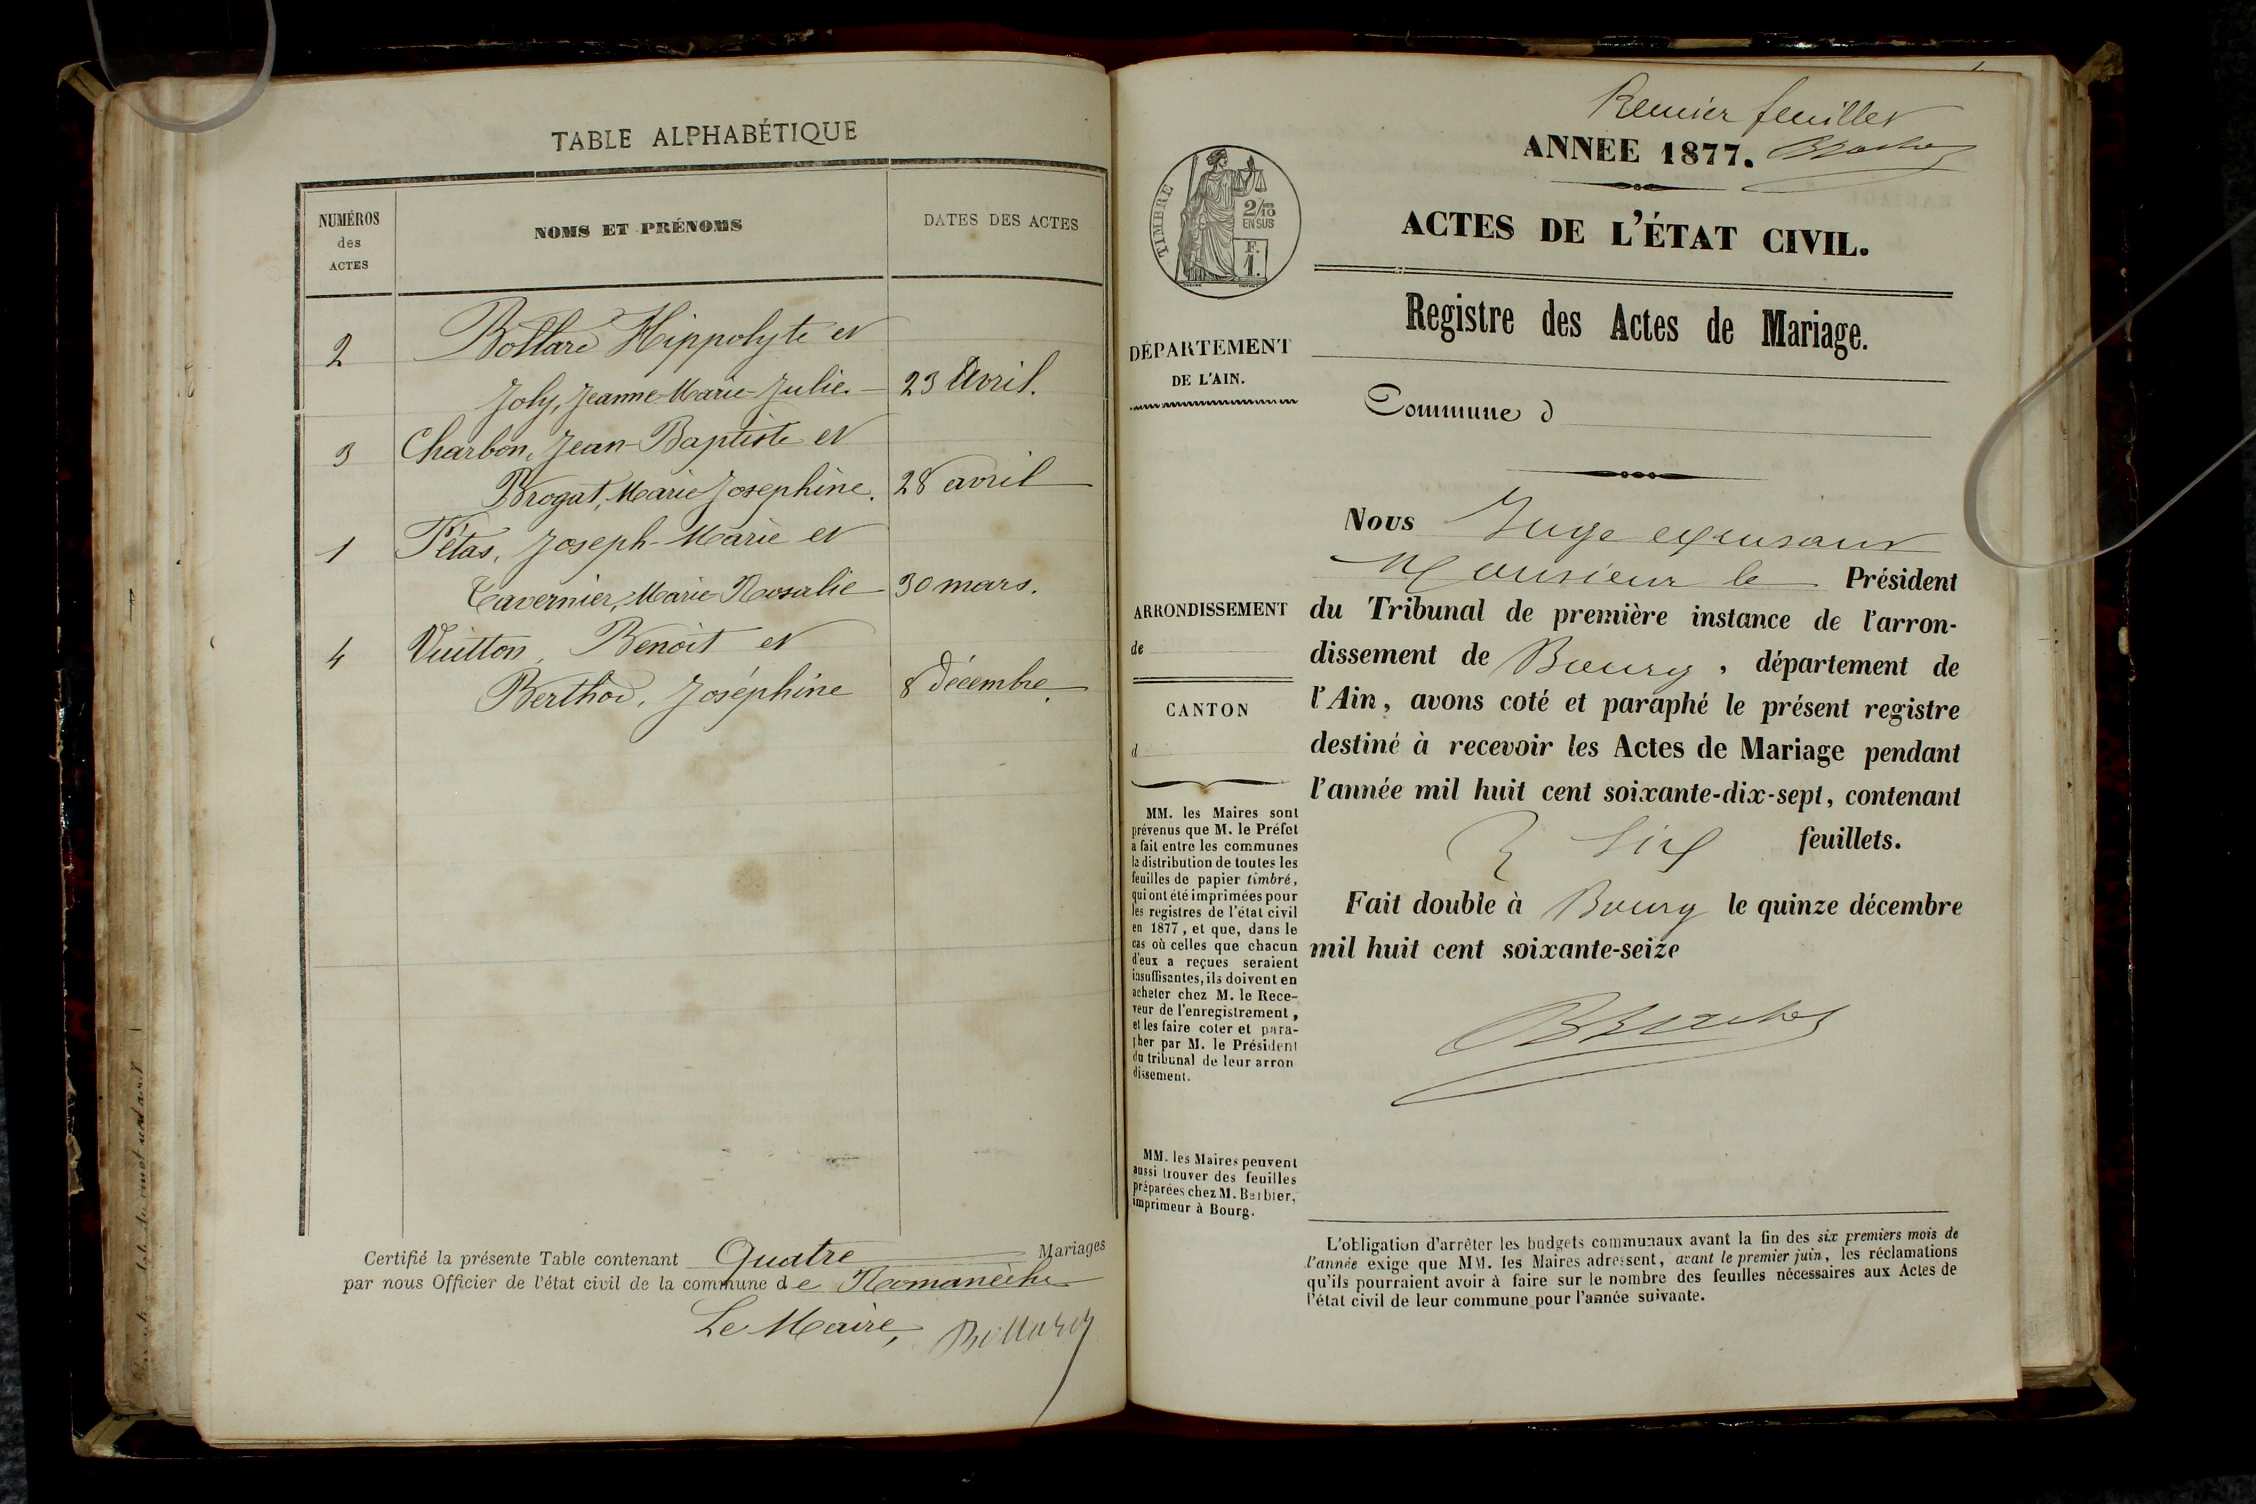 TABLE ALPHABÉTIQUE
NUMÉROS
des
ACTES
NOMS ET PRÉNOMS
DATES DES ACTES
2
Hippolyte et
Joly, Jeanne-Marie-Julie
23 Avril.
3
Charbon, Jean-Baptiste et
Brogat, Marie Josephine.
28 avril
1
Joseph-Marie et
Tavernier, Marie Rosalie
30 mars.
4
Vuitton, Benoît et
Berthod, Joséphine
8 décembre.
Certifié la présente Table contenant Quatre Mariages
par nous Officier de l'état civil de la commune de Romanèche
Le Maire,
Premier feuillet
ANNEE 1877.
ACTES DE L'ÉTAT CIVIL.
Registre des Actes de Mariage.
Commune d
TIMBRE
2/10
EN SUS
F.
1.
DÉPARTEMENT
DE L'AIN.
ARRONDISSEMENT
de
CANTON
d
MM. les Maires sont
prévenus que M. le Préfet
a fait entre les communes
la distribution de toutes les
feuilles de papier timbré,
qui ont été imprimées pour
les registres de l'état civil
en 1877, et que, dans le
cas où celles que chacun
d'eux a reçues seraient
insuffisantes, ils doivent en
acheter chez M. le Rece-
veur de l'enregistrement,
et les faire coter et para-
pher par M. le Président
du tribunal de leur arron
dissement.
MM. les Maires peuvent
aussi trouver des feuilles
préparées chez M. Barbier,
imprimeur à Bourg.
Nous Juge
Monsieur le Président
du Tribunal de première instance de l'arron-
dissement de Bourg, département de
l'Ain, avons coté et paraphé le présent registre
destiné à recevoir les Actes de Mariage pendant
l'année mil huit cent soixante-dix-sept, contenant
feuillets.
Fait double à Bourg le quinze décembre
mil huit cent soixante-seize
L'obligation d'arrêter les budgets communaux avant la fin des six premiers mois de
l'année exige que MM. les Maires adressent, avant le premier juin, les réclamations
qu'ils pourraient avoir à faire sur le nombre des feuilles nécessaires aux Actes de
l'état civil de leur commune pour l'année suivante.